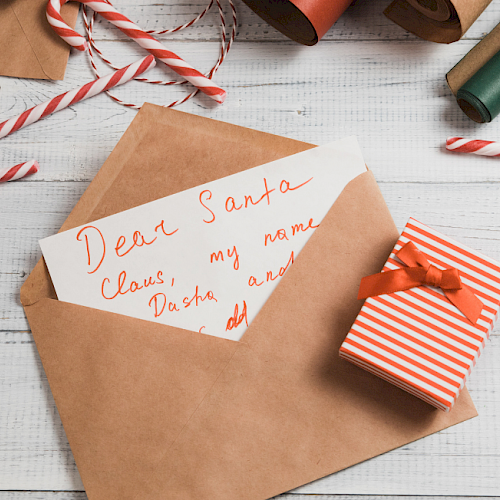 Dear Santa
Claus, my name
Dasha and